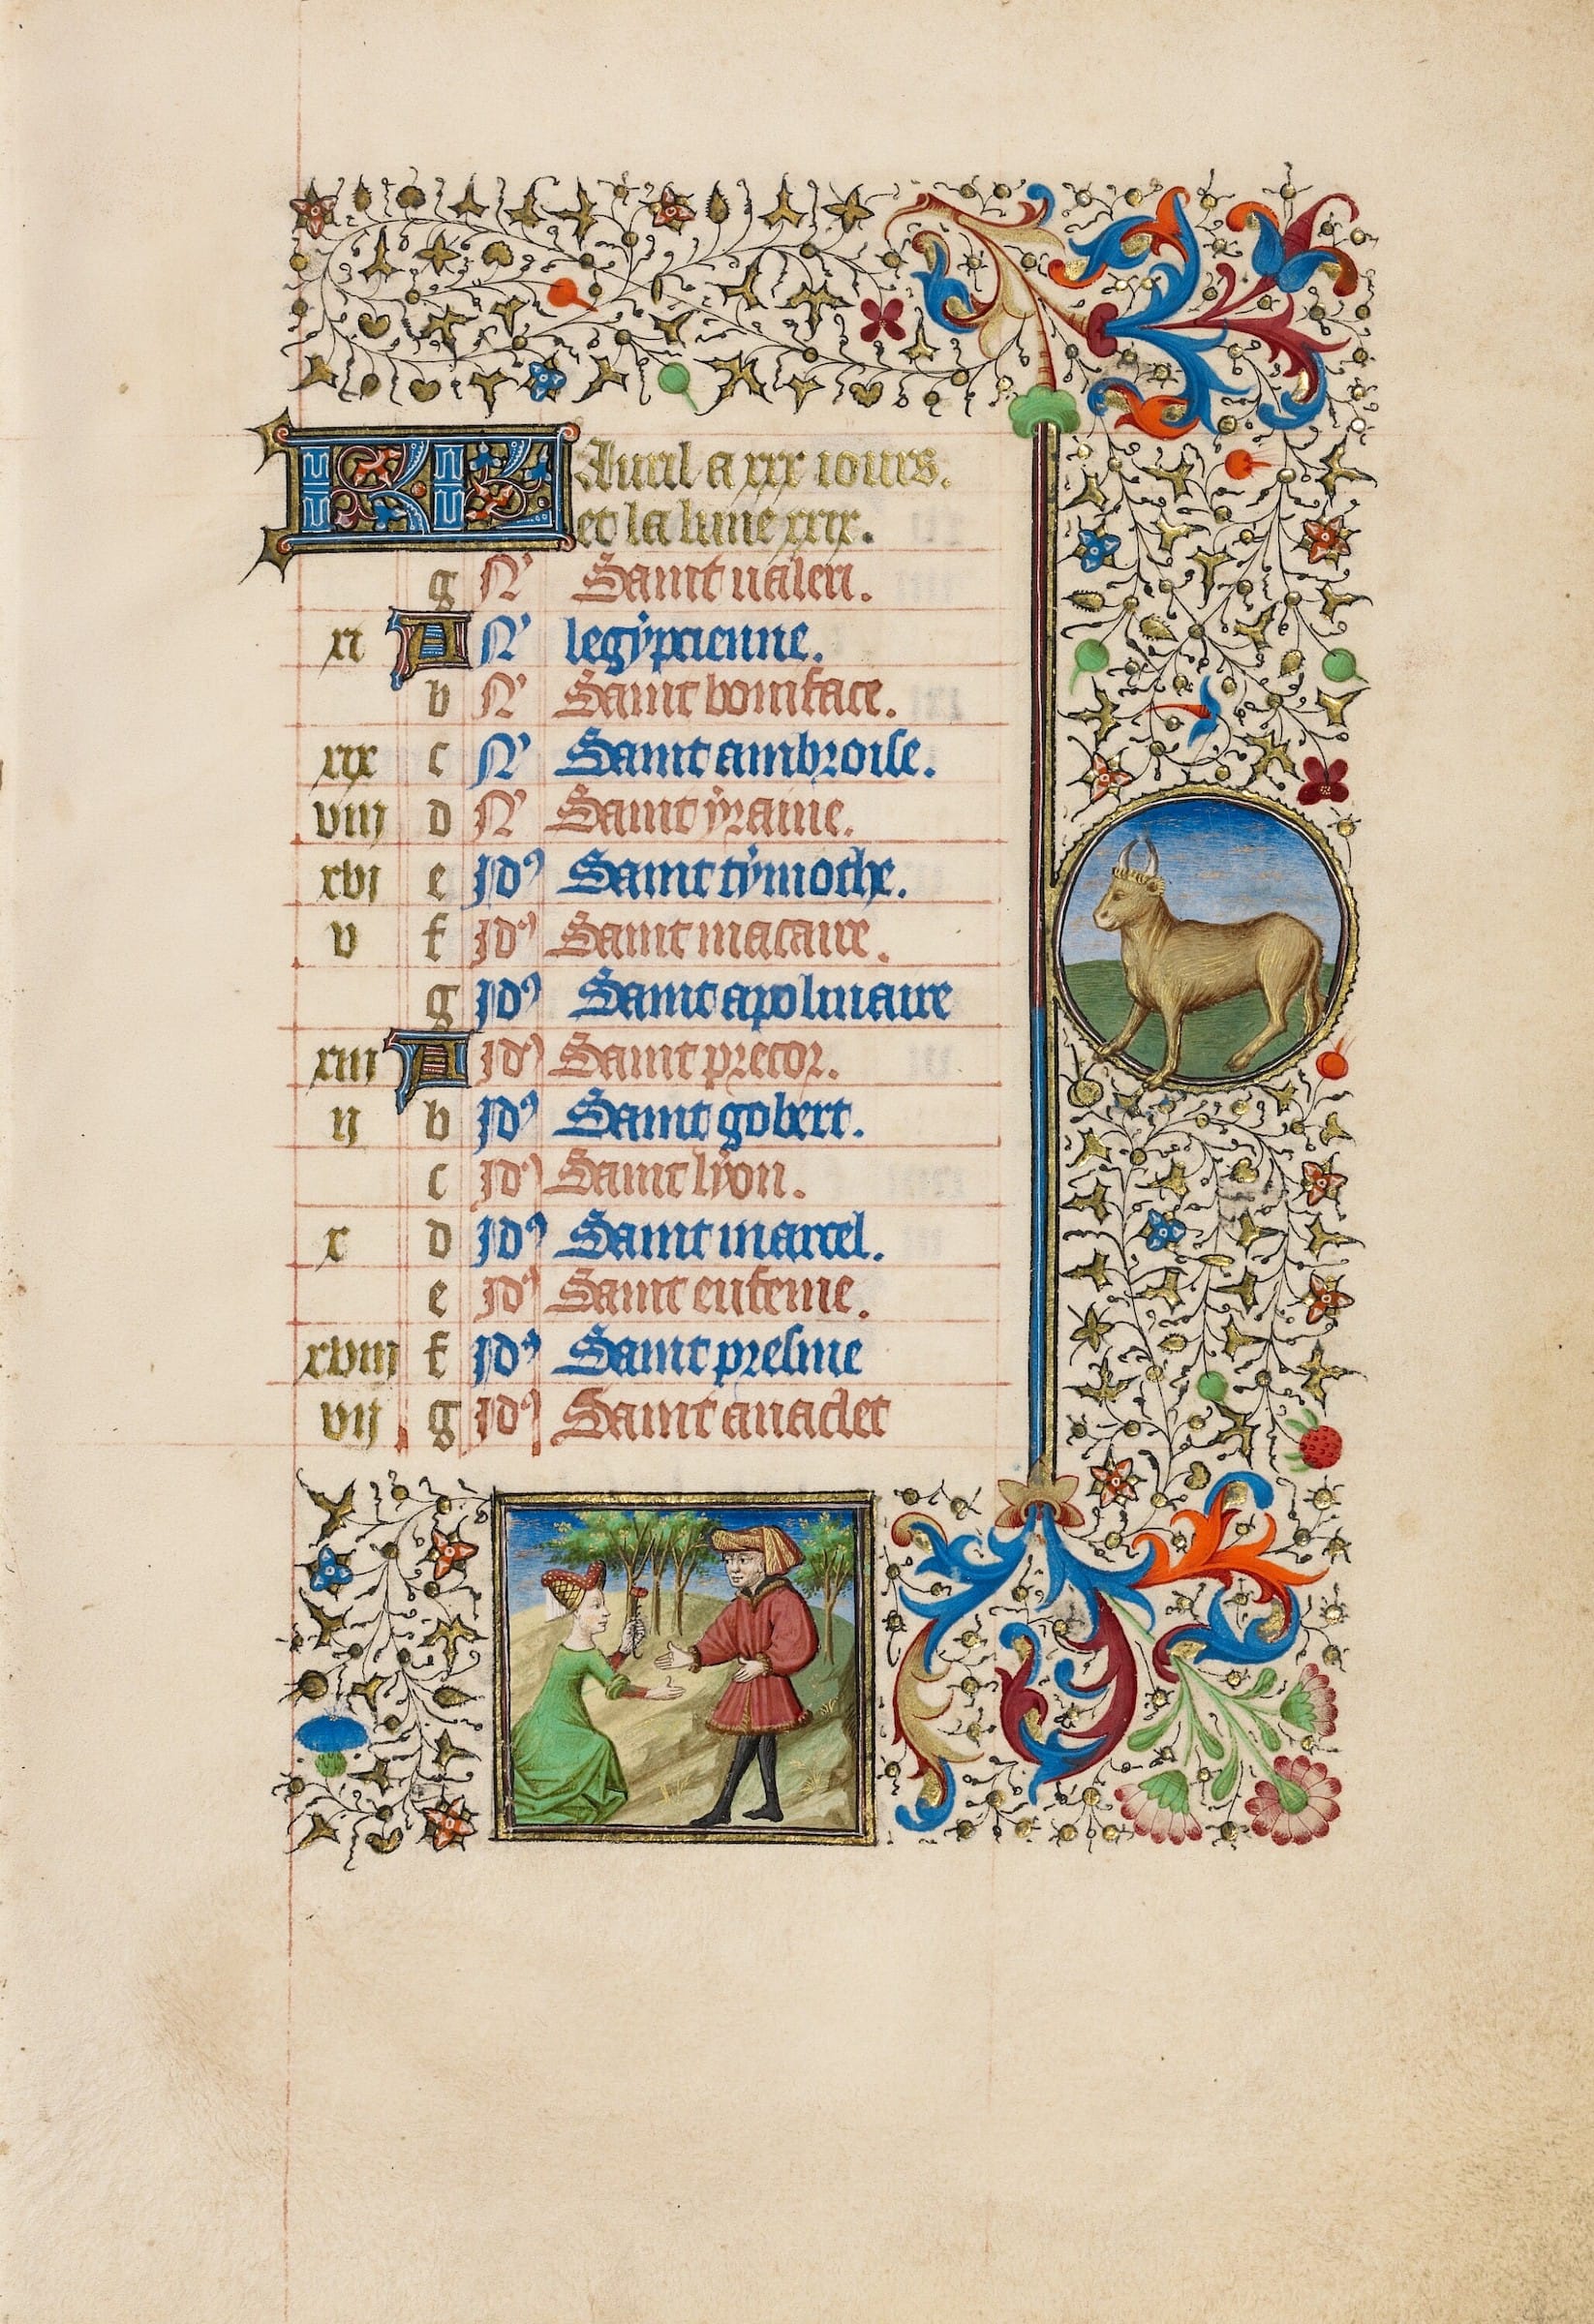 KL Auril a xxx iours.
et la lune xxix.
g N' Saint ualeri.
xi A N' legypcienne.
b N' Saint boniface.
xix c N' Saint ambroise.
viij d N' Saint yraine.
xvi e Jd' Saint tymothe.
v f Jd' Saint macaire.
g Jd' Saint apolinaire
xiii A Jd' Saint precor.
ij b Jd' Saint gobert.
c Jd' Saint lyon.
x d Jd' Saint marcel.
e Jd' Saint eufeme.
xviii f Jd' Saint presme
vij g Jd' Saint anaclet